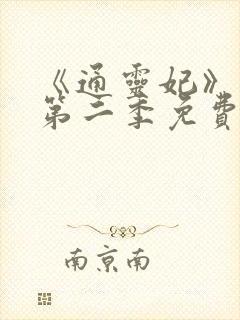 《通靈妃》
第二季免費
南京南